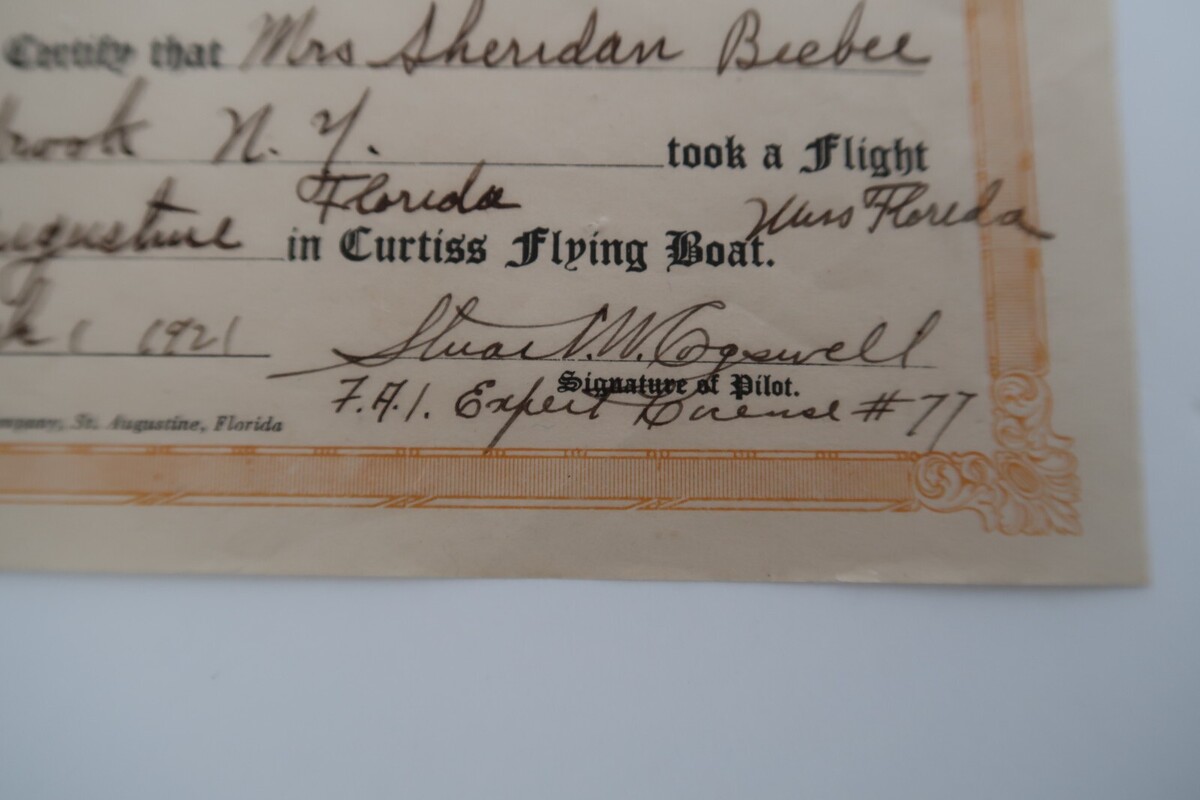 Certify that Mrs Sheridan Beebee
N. Y. took a Flight
Florida
Augustine in Curtiss Flying Boat. Miss Florida
1 1921 Stuart W. Cogswell
Signature of Pilot.
F.A.I. Expert License #77
Company, St. Augustine, Florida